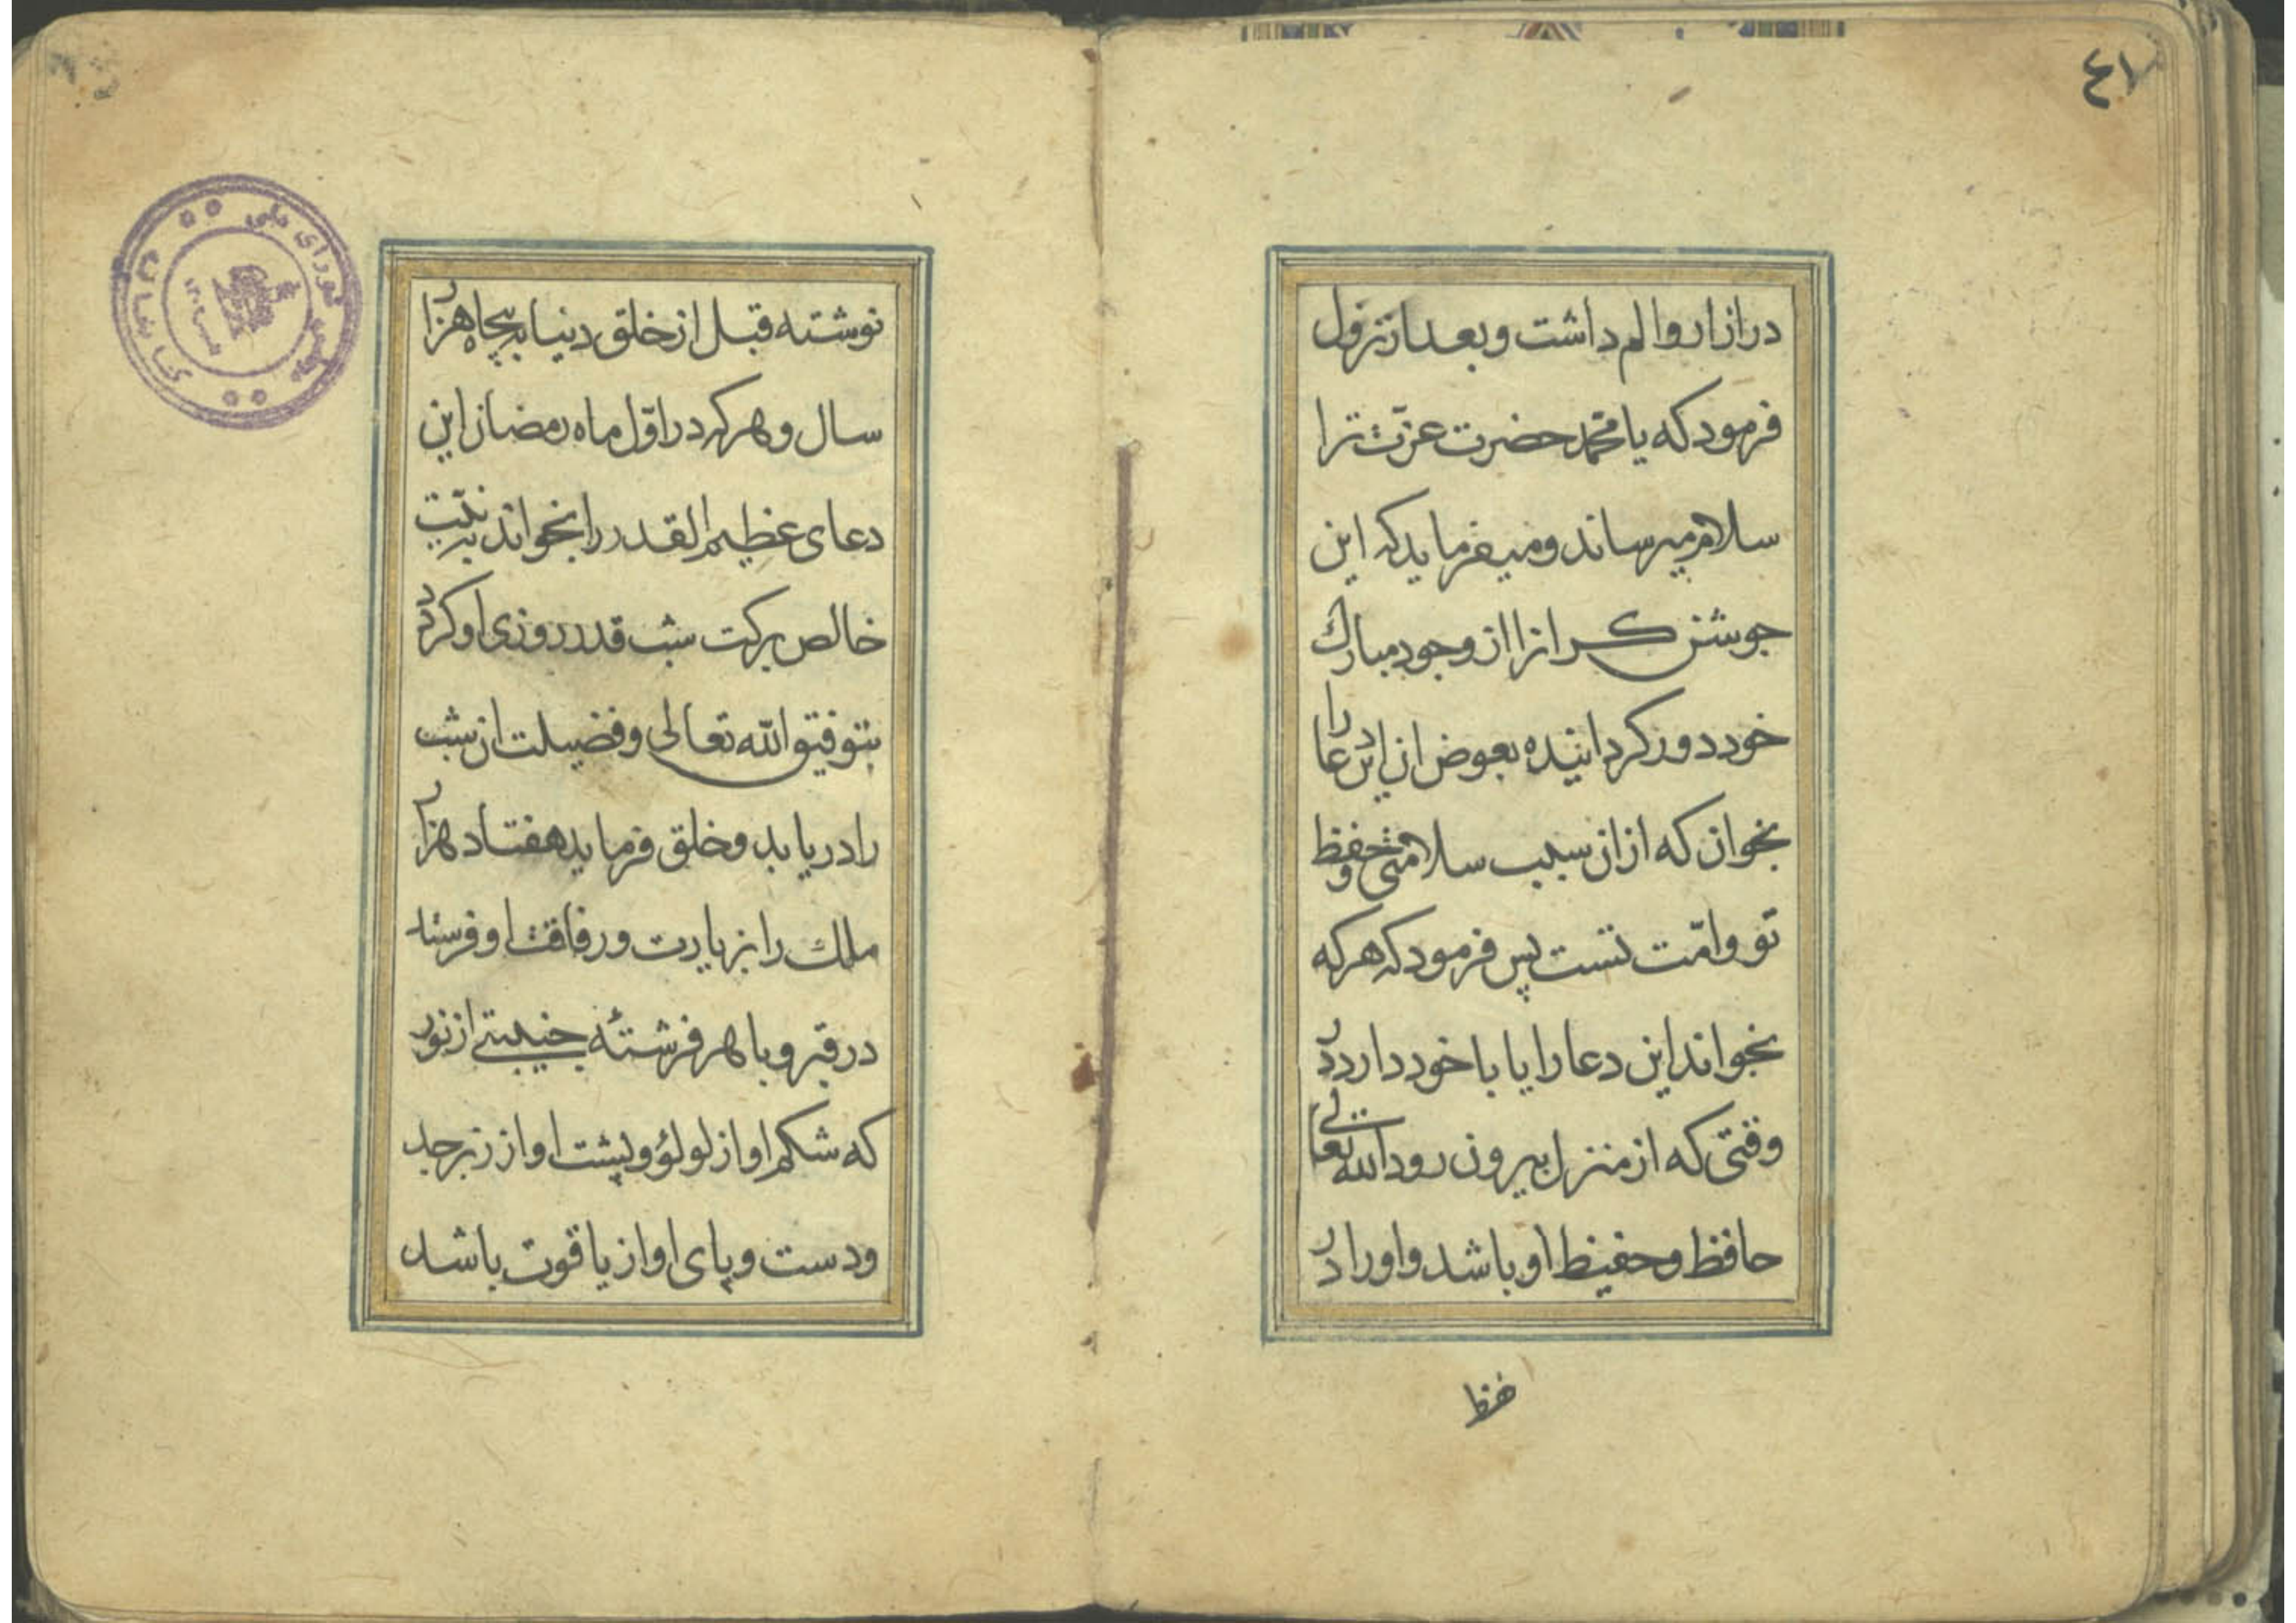 ٤١
در ازار و الم داشت و بعد از نزول
فرمود که یا محمّد حضرت عزّت ترا
سلام میرساند و میفرماید که این
جوشن کرانرا از وجود مبارک
خود دور کردانیده بعوض ان این دعا را
بخوان که ازان سبب سلامتی و حفظ
تو و امّت تست پس فرمود که هر که
بخواند این دعا را یا با خود دارد در
وقتی که از منزل بیرون رود الله تعالی
حافظ و حفیظ او باشد و او را در
نوشته قبل از خلق دنیا به پنجاه هزار
سال و هر که در اوّل ماه رمضان این
دعای عظیم القدر را بخواند به نیّت
خالص برکت شب قدر روزی او کردد
بتوفیق الله تعالی و فضیلت ان شب
را دریابد و خلق فرماید هفتاد هزار
ملک را بزیارت و رفاقت او فرستد
در قبر و با هر فرشتۀ جنیبتی از نور
که شکم او از لولؤ و پشت او از زبرجد
و دست و پای او از یاقوت باشد
کتابخانه مجلس شورای ملی